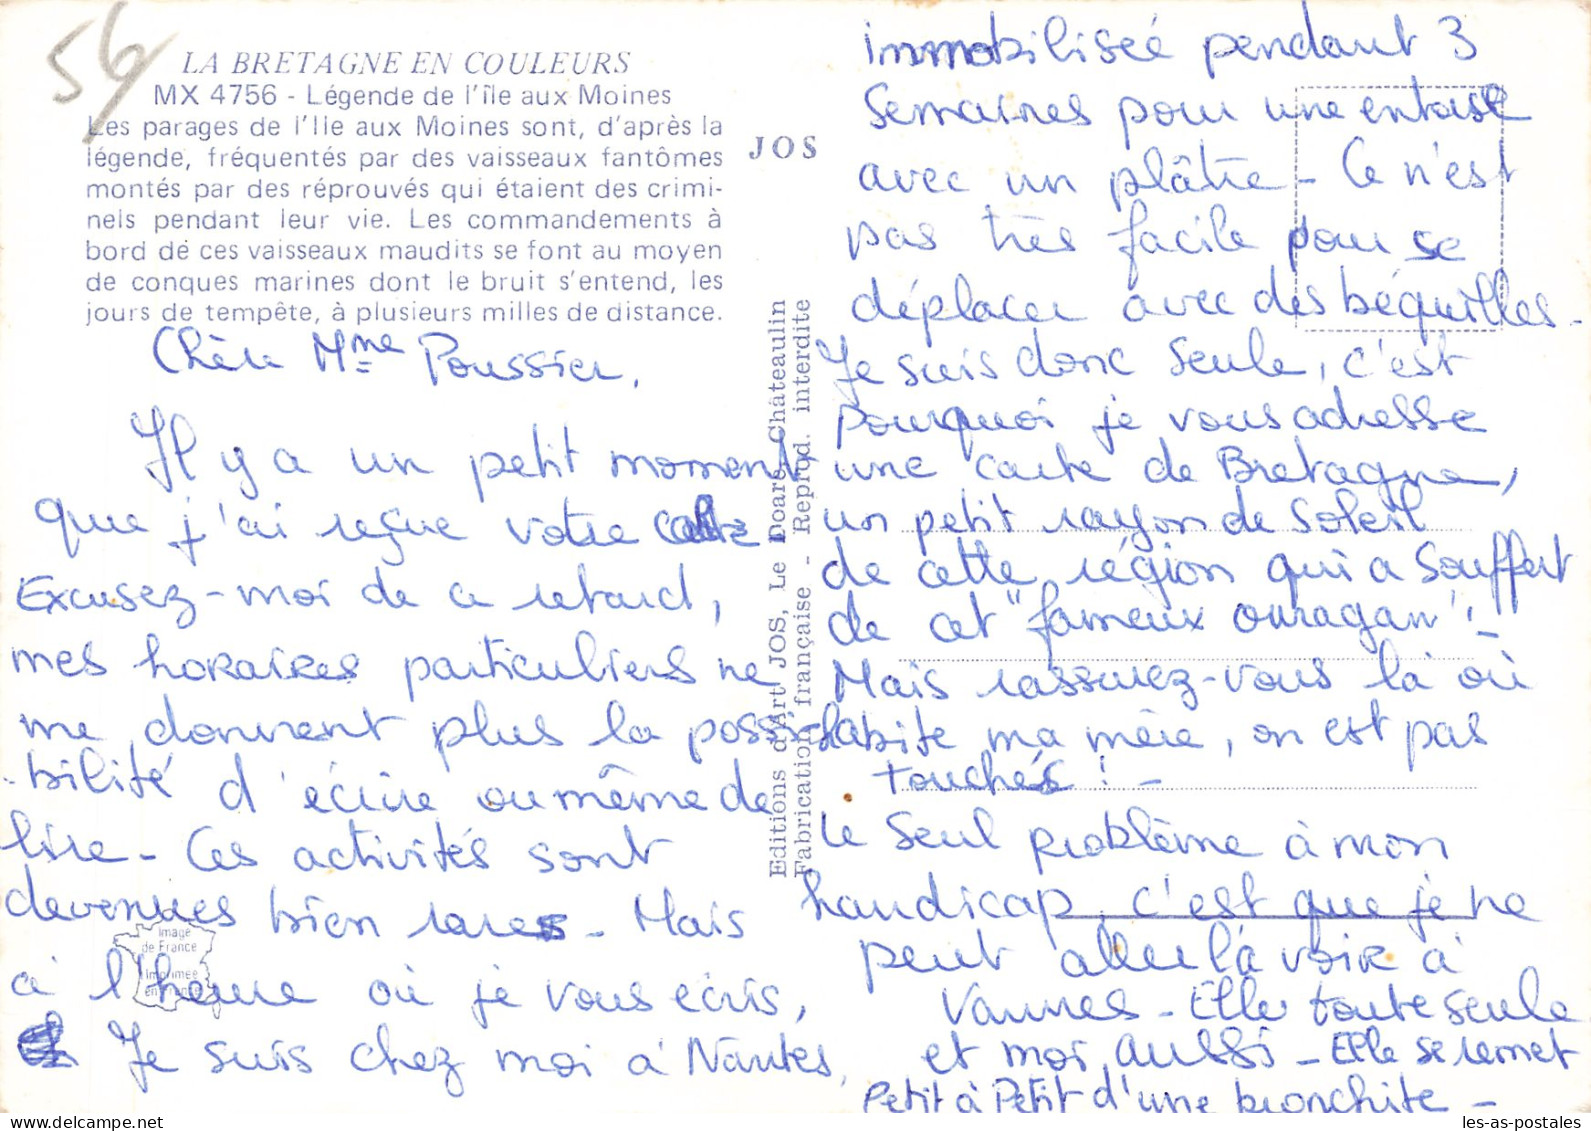 56
LA BRETAGNE EN COULEURS
MX 4756 - Légende de l'île aux Moines
Les parages de l'Ile aux Moines sont, d'après la
légende, fréquentés par des vaisseaux fantômes
montés par des réprouvés qui étaient des crimi-
nels pendant leur vie. Les commandements à
bord de ces vaisseaux maudits se font au moyen
de conques marines dont le bruit s'entend, les
jours de tempête, à plusieurs milles de distance.
JOS
Editions d'Art JOS, Le Doaré, Châteaulin
Fabrication française - Reprod. interdite
Chère Mme Poussier,
Il y a un petit moment
que j'ai reçue votre carte
Excusez-moi de ce retard,
mes horaires particuliers ne
me donnent plus la possi-
bilité d'écrire ou même de
lire - Ces activités sont
devenues bien rares - Mais
à l'heure où je vous écris,
Je suis chez moi à Nantes,
Image
de France
Imprimée
en France
immobilisée pendant 3
semaines pour une entorse
avec un plâtre - Ce n'est
pas très facile pour se
déplacer avec des béquilles -
Je suis donc seule, c'est
pourquoi je vous adresse
une carte de Bretagne,
un petit rayon de soleil
de cette région qui a souffert
de cet "fameux ouragan" -
Mais rassurez-vous là où
habite ma mère, on est pas
touchés ! -
Le seul problème à mon
handicap, c'est que je ne
peut aller la voir à
Vannes - Elle toute seule
et moi aussi - Elle se remet
Petit à Petit d'une bronchite -
les-as-postales